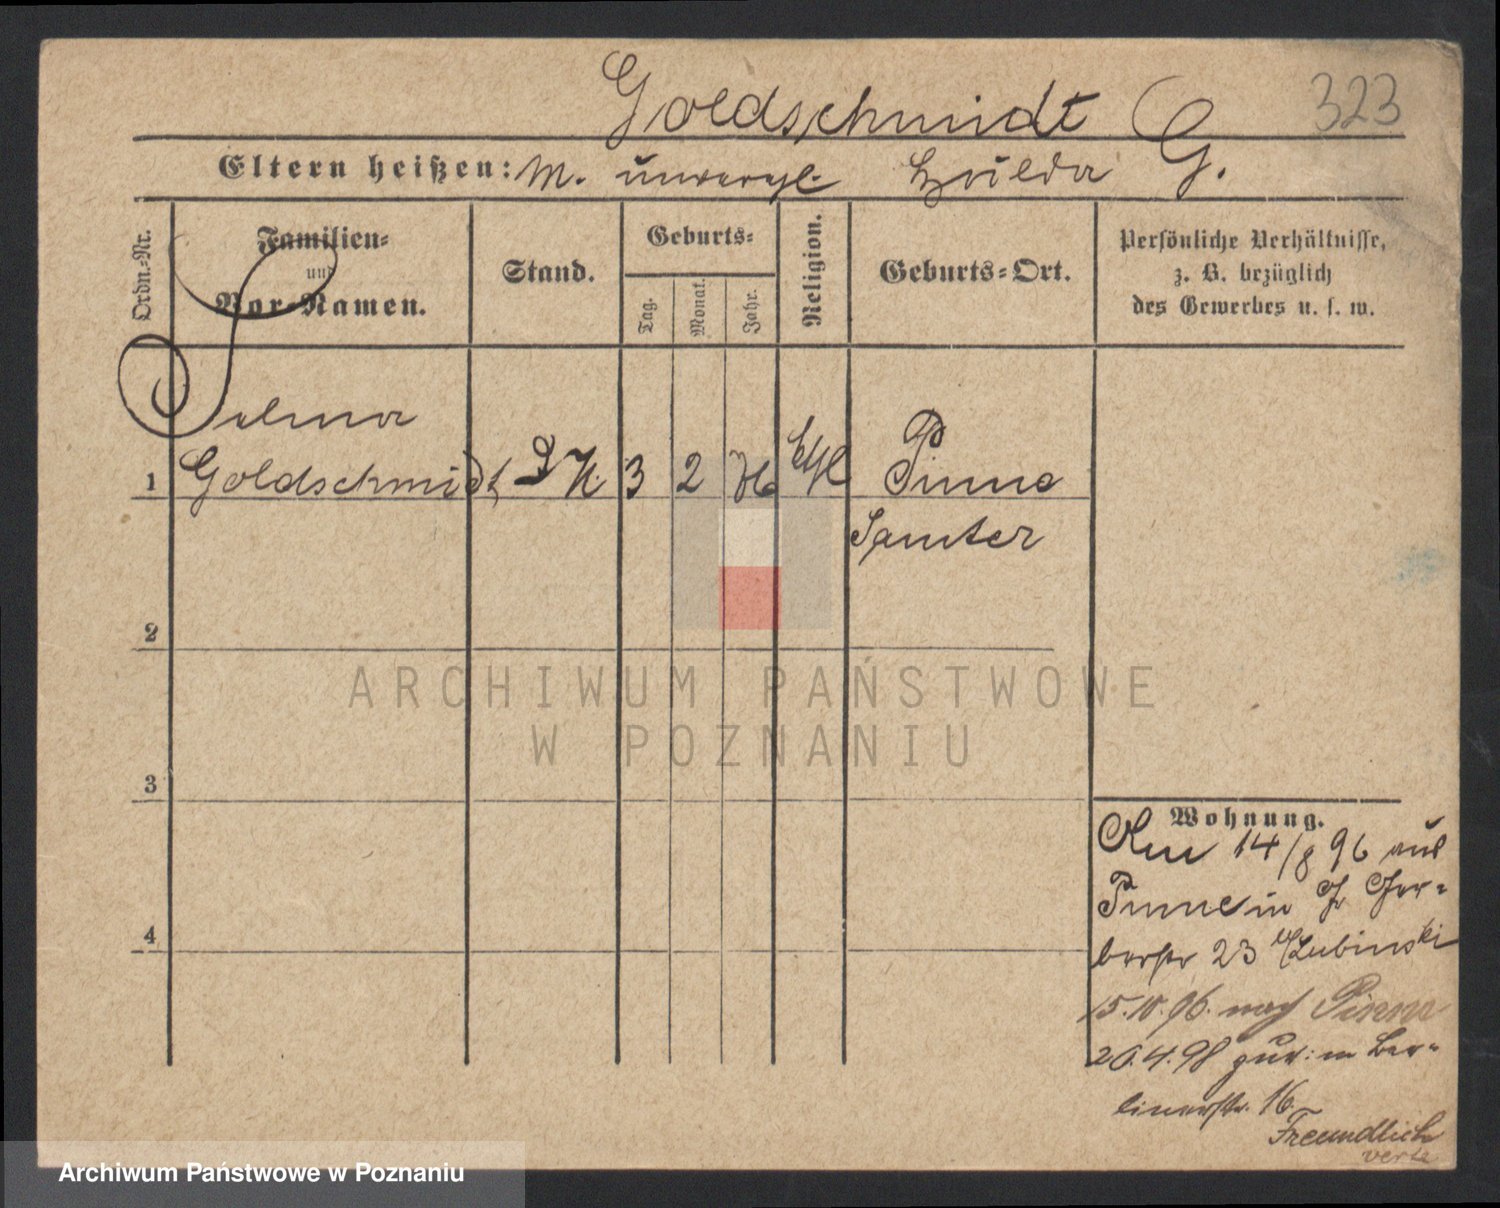 Goldschmidt G
323
Eltern heißen: M. unverehl. Hulda G.
Ordn.-Nr.
Familien-
und
Vor-Namen.
Stand.
Geburts-
Tag.
Monat.
Jahr.
Religion.
Geburts-Ort.
Persönliche Verhältnisse,
z. B. bezüglich
des Gewerbes u. s. w.
Selma
1 Goldschmidt 3 2 76 Pinne
Samter
2
ARCHIWUM PAŃSTWOWE
W POZNANIU
3
Wohnung.
14/8 96 aus
Pinne in Ger-
berstr 23 Lubinski
4
15.10.96. nach Pinne
26.4.98 zur: in Ber-
linerstr. 16.
Freundlich
verte
Archiwum Państwowe w Poznaniu